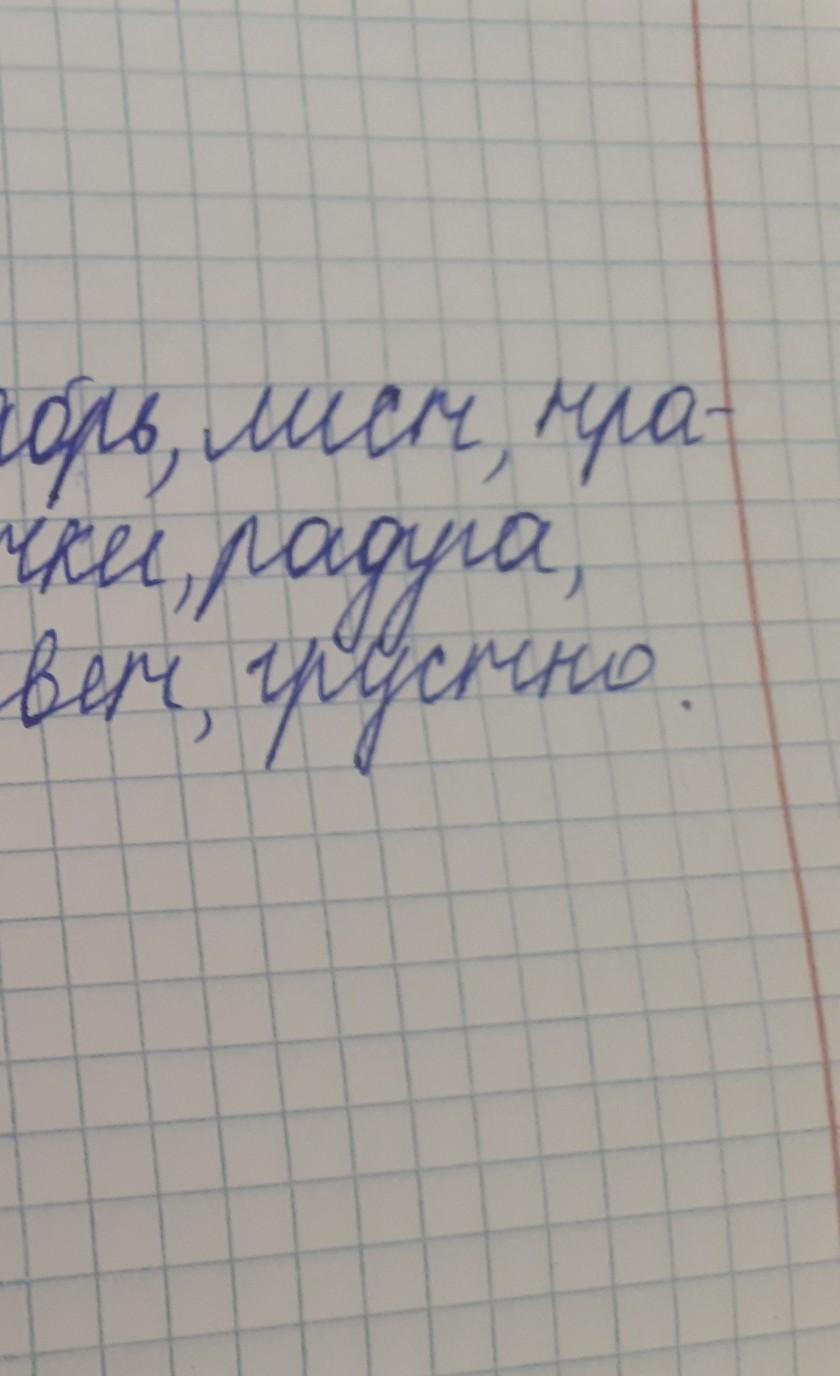 абрь, лист, тра-
чки, радуга,
вет, грустно.